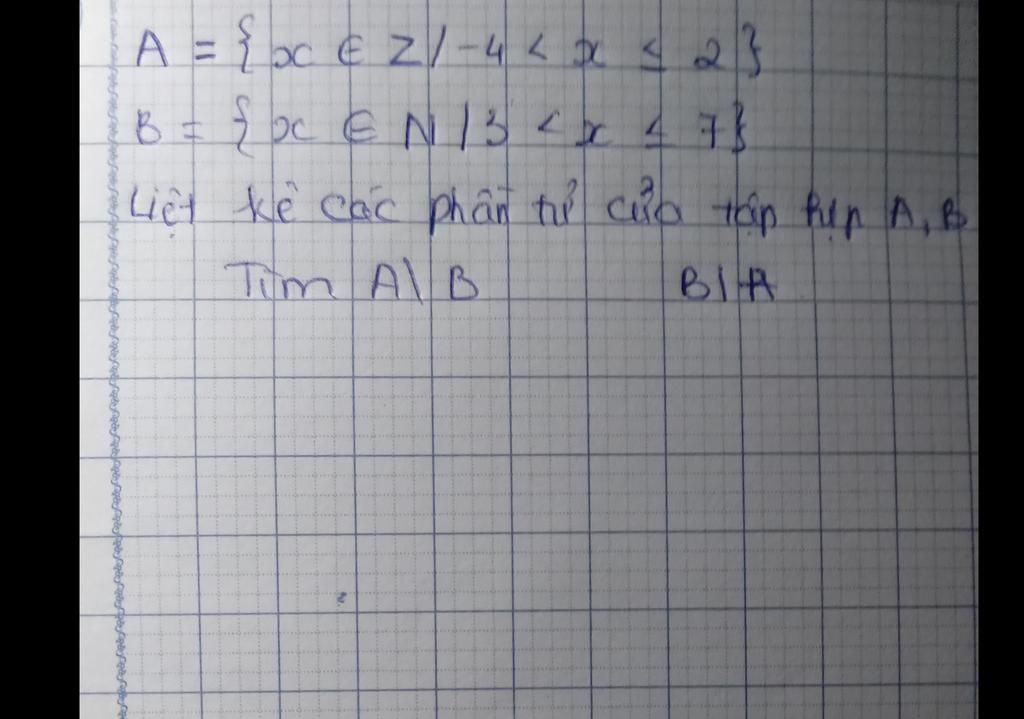 A = {x ∈ Z / -4 < x ≤ 2}
B = {x ∈ N / 3 < x ≤ 7}
Liệt kê các phần tử của tập hợp A, B
Tìm A \ B B \ A